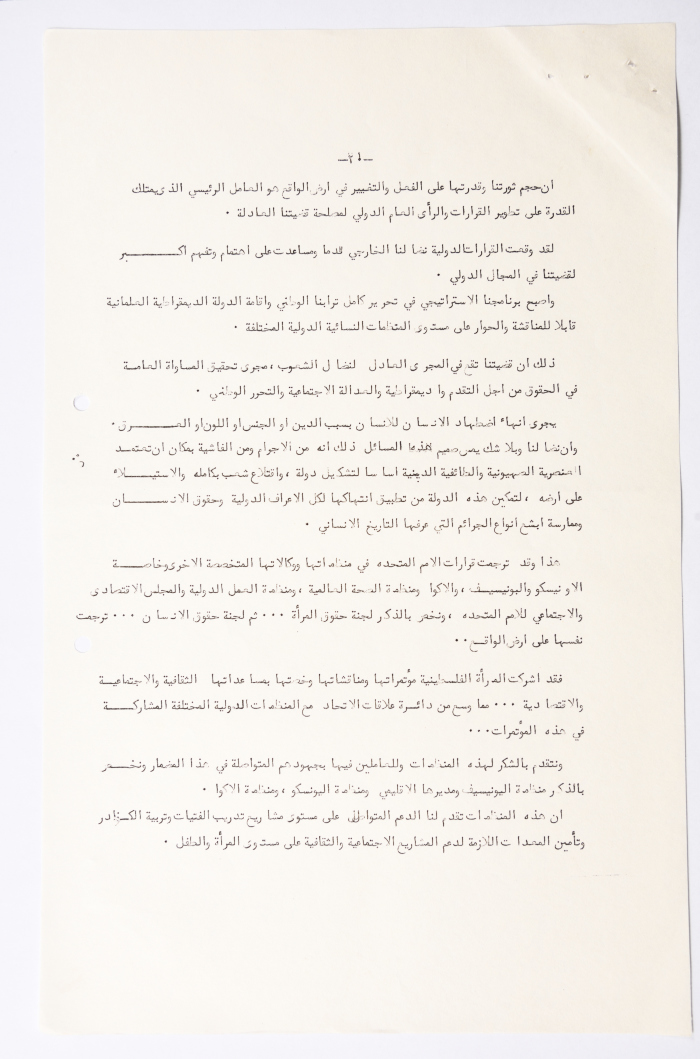 -٢١-
ان حجم ثورتنا وقدرتها على الفعل والتغيير في ارض الواقع هو العامل الرئيسي الذي يمتلك
القدرة على تطوير القرارات والرأى العام الدولي لمصلحة قضيتنا العادلة .
لقد وقعت القرارات الدولية نضا لنا الخارجي قدما وساعدت على اهتمام وتفهم اكـــــــبر
لقضيتنا في المجال الدولي .
واصبح برنامجنا الاستراتيجي في تحرير كامل ترابنا الوطني واقامة الدولة الديمقراطية العلمانية
قابلا للمناقشة والحوار على مستوى المنظمات النسائية الدولية المختلفة .
ذلك ان قضيتنا تقع في المجرى العادل لنضال الشعوب ، مجرى تحقيق المساواة العامـــة
في الحقوق من اجل التقدم والديمقراطية والعدالة الاجتماعية والتحرر الوطني .
يجرى انهاء اضطهاد الانسان للانسان بسبب الدين او الجنس او اللون او العـــــرق.
وان نضا لنا وبلا شك يمس صميم هذه المسائل ذلك انه من الاجرام ومن الفاشية بمكان ان تعتمد
العنصرية الصهيونية والطائفية الدينية اساسا لتشكيل دولة ، واقتلاع شعب بكامله والاستيـــلاء
على ارضه ، لتمكين هذه الدولة من تطبيق انتهاكها لكل الاعراف الدولية وحقوق الانســـان
وممارسة ابشع انواع الجرائم التي عرفها التاريخ الانساني .
هذا وقد ترجمت قرارات الامم المتحده في منظماتها ووكالاتها المتخصصة الاخرى وخاصـــة
الاونيسكو واليونيسيف ، والاكوا ومنظمة الصحة العالمية ، ومنظمة العمل الدولية والمجلس الاقتصادى
والاجتماعي للامم المتحده ، ونخص بالذكر لجنة حقوق المرأة ... ثم لجنة حقوق الانسان ... ترجمت
نفسها على ارض الواقـع..
فقد اشركت المرأة الفلسطينية مؤتمراتها ومناقشاتها وخصتها بمساعداتها الثقافية والاجتماعيـة
والاقتصادية ... مما وسع من دائرة علاقات الاتحاد مع المنظمات الدولية المختلفة المشاركـــة
في هذه المؤتمرات...
ونتقدم بالشكر لهذه المنظمات وللعاملين فيها بجهودهم المتواصلة في هذا المضمار ونخـــص
بالذكر منظمة اليونيسيف ومديرها الاقليمي ومنظمة اليونسكو ، ومنظمة الاكوا .
ان هذه المنظمات تقدم لنا الدعم المتواصل على مستوى مشاريع تدريب الفتيات وتربية الكـوادر
وتأمين المعدات اللازمة لدعم المشاريع الاجتماعية والثقافية على مستوى المرأة والطفل .